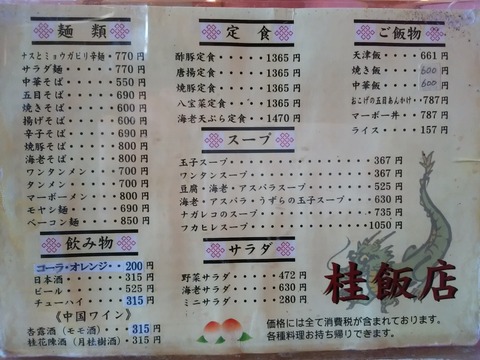 麺類
ナスとミョウガピリ辛麺・770円
サラダ麺・・・・・770円
中華そば・・・・・550円
五目そば・・・・・690円
焼きそば・・・・・600円
揚げそば・・・・・600円
辛子そば・・・・・690円
焼豚そば・・・・・800円
海老そば・・・・・800円
ワンタンメン・・・700円
タンメン・・・・・700円
マーボーメン・・・800円
モヤシ麺・・・・・690円
ベーコン麺・・・・850円
飲み物
コーラ・オレンジ・・200円
日本酒・・・・・・315円
ビール・・・・・・525円
チューハイ・・・・315円
《中国ワイン》
杏露酒(モモ酒)・・315円
桂花陳酒(月桂樹酒)・315円
定食
酢豚定食・・・・・1365円
唐揚定食・・・・・1365円
焼豚定食・・・・・1365円
八宝菜定食・・・・1365円
海老天ぷら定食・・1470円
スープ
玉子スープ・・・・・・・・・・・367円
ワンタンスープ・・・・・・・・・367円
豆腐・海老・アスパラスープ・・・525円
海老・アスパラ・うずらの玉子スープ・630円
ナガレコのスープ・・・・・・・・735円
フカヒレスープ・・・・・・・・・1050円
サラダ
野菜サラダ・・・・472円
海老サラダ・・・・630円
ミニサラダ・・・・280円
ご飯物
天津飯・・・・・・661円
焼き飯・・・・・・600円
中華飯・・・・・・600円
おこげの五目あんかけ・787円
マーボー丼・・・・787円
ライス・・・・・・157円
桂飯店
価格には全て消費税が含まれております。
各種料理お持ち帰りできます。